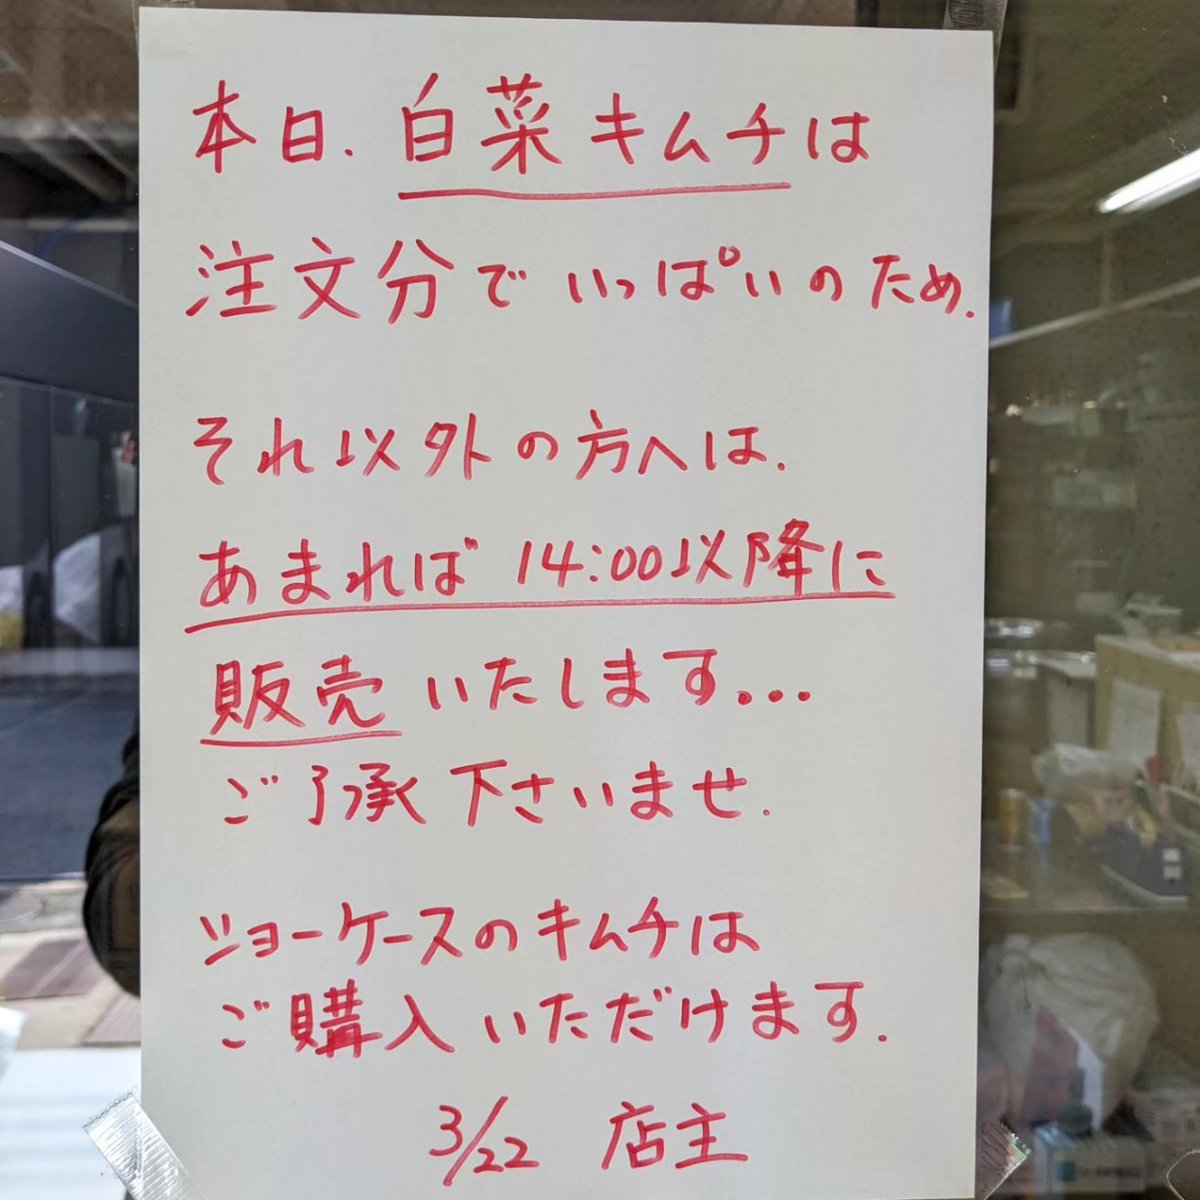 本日.白菜キムチは
注文分でいっぱいのため.
それ以外の方へは.
あまれば 14:00以降に
販売いたします...
ご了承下さいませ.
ショーケースのキムチは
ご購入いただけます.
3/22 店主